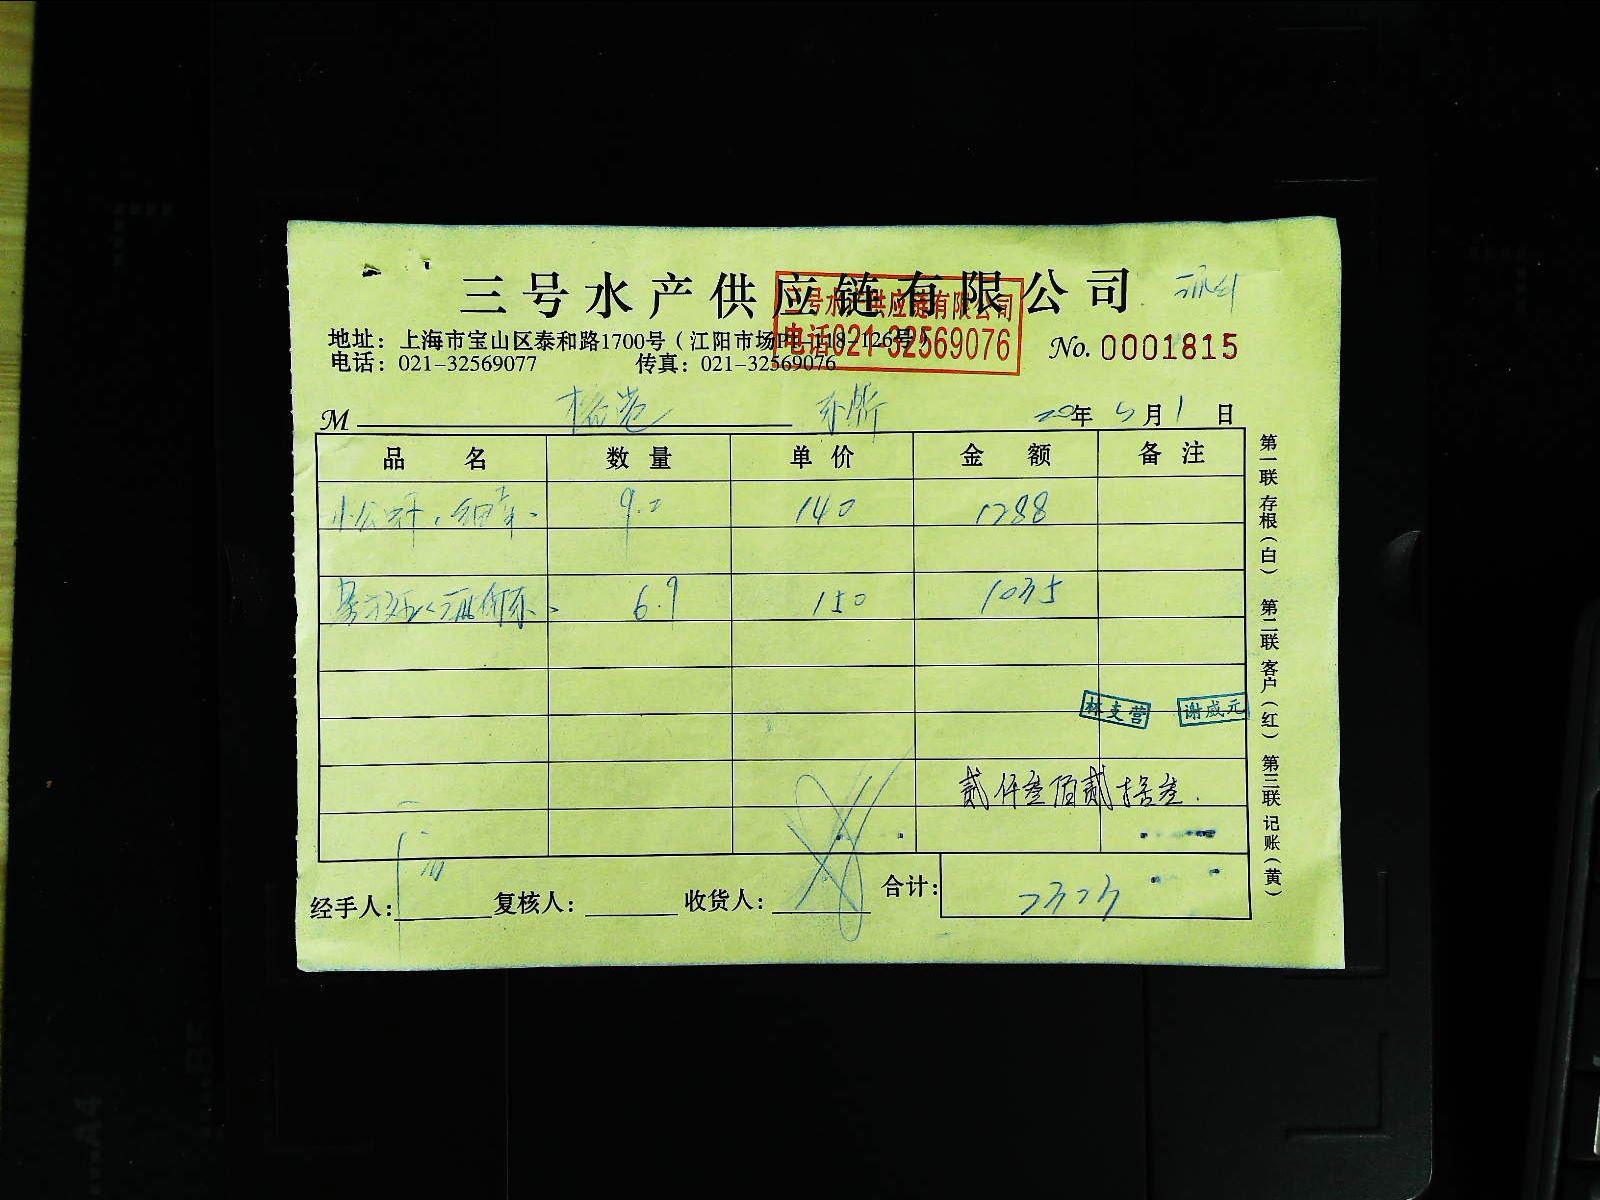 三号水产供应链有限公司
三号水产供应链有限公司
电话021-32569076
地址：上海市宝山区泰和路1700号（江阳市场 118-126号）
No. 0001815
电话：021-32569077 传真：021-32569076
M 20年5月1日
品名 数量 单价 金额 备注
9.2 140 1288
6.9 150 1035
林支营 谢威元
贰仟叁佰贰拾叁.
经手人： 复核人： 收货人： 合计： 2323
第一联 存根（白） 第二联 客户（红） 第三联 记账（黄）